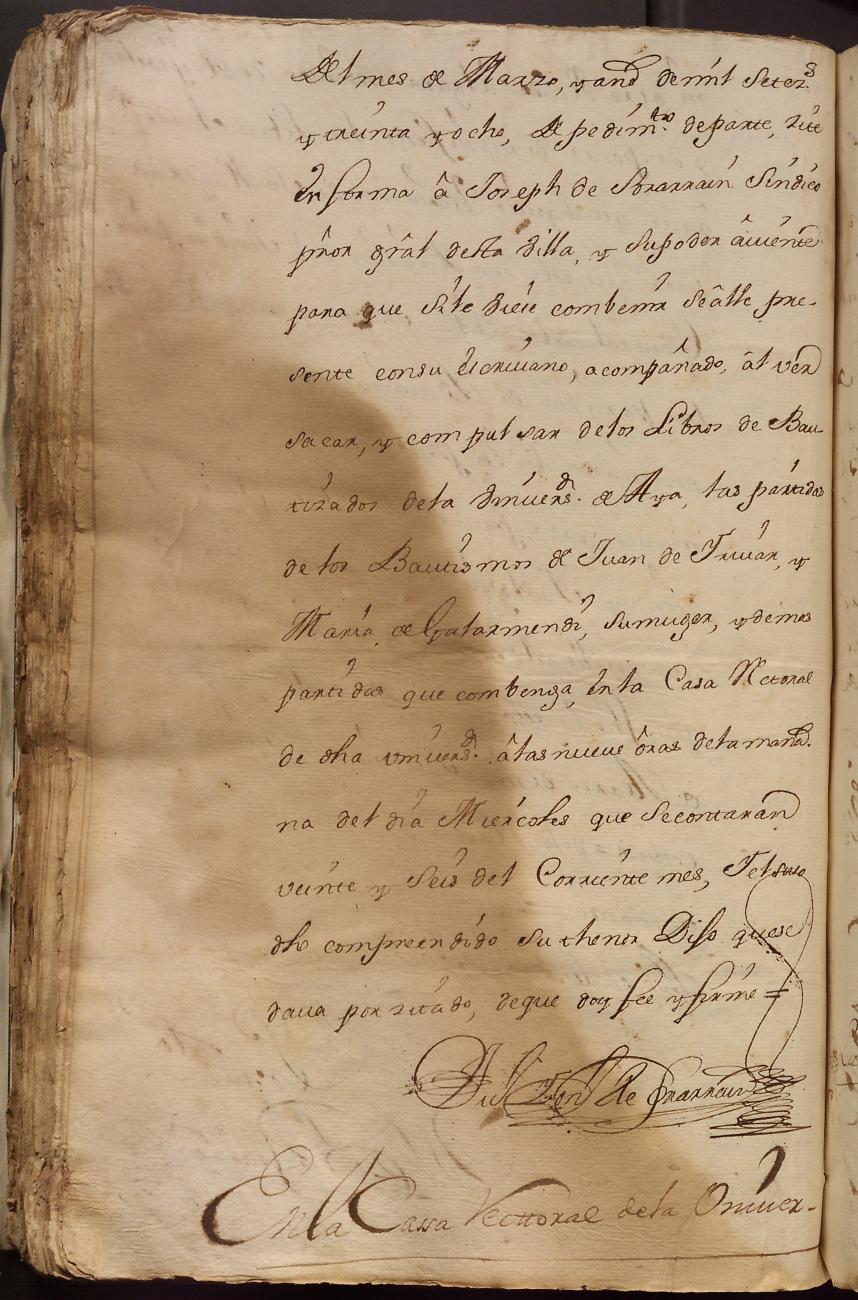 Del mes de Marzo, y año de mil Setez.s
y treinta y ocho, de pedim.to de parte, zite
en forma â Joseph de Ibrarrain Sindico
pror grâl desta Villa, y su poder âviente
para que si le viere combenir se âlle pre-
sente con su escrivano, acompañado, âl ver
sacar, y compulsar de los Libros de Bau-
tizados de la Vnivers.d de Aya, las partidas
de los Bautismos de Juan de Iruar, y
Maria de Gatarmendi, su muger, y demas
partidas que combenga, en la Casa Rectoral
de dha vnivers.d â las nueve ôras de la maña-
na del dia Miércoles que se contarán
veinte y seis del Corriente mes, Iel suso
dho compreendido su thenor Dijo que se
dava por zitado, de que doy fee y firme =
Joseph de Ibrarrain
En la Cassa Recttoral de la Vniver-